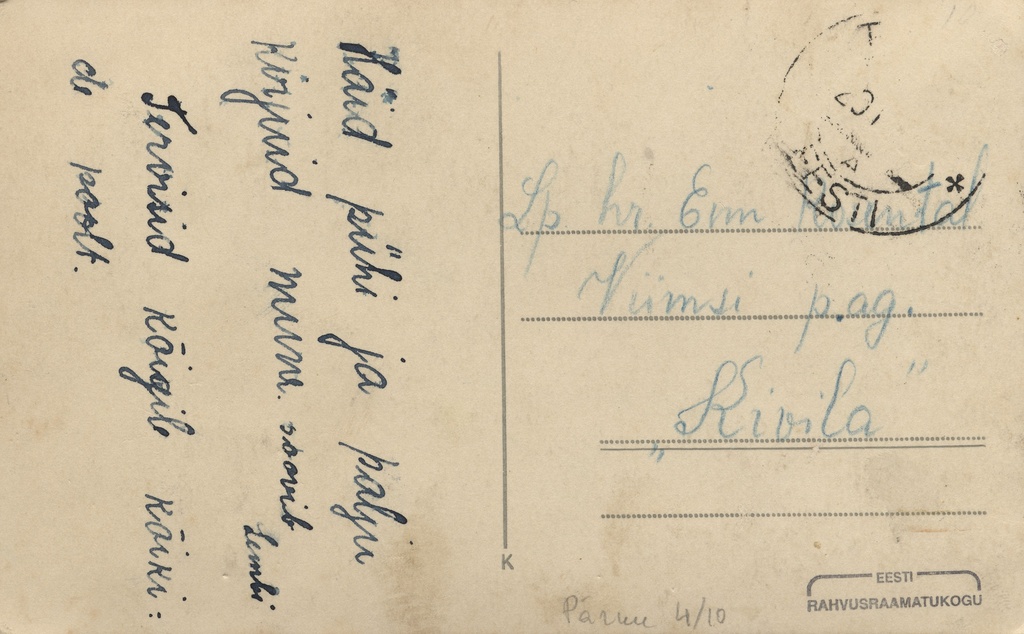 Häid pühi ja palju
Kirjuid mune. soovib
Lembi
Tervisid kõigile kõiki:
de poolt.
Lp hr. Enn
Viimsi p.ag.
„Kivila"
EESTI
K
Pärnu 4/10
EESTI
RAHVUSRAAMATUKOGU